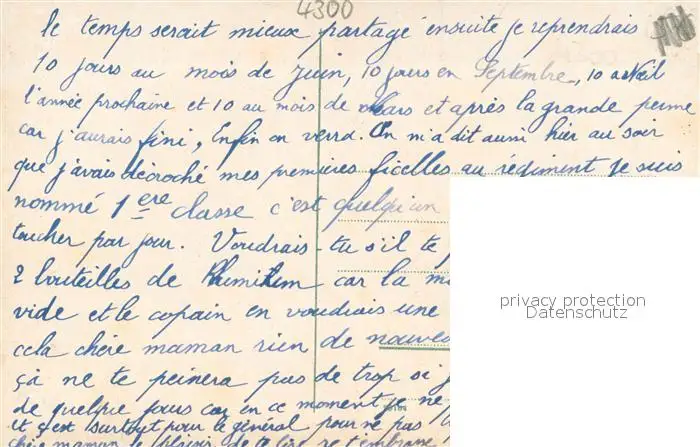 4300
le temps serait mieux partagé ensuite je reprendrais
10 jours au mois de Juin, 10 jours en Septembre, 10 a Noël
l'année prochaine et 10 au mois de Mars et après la grande perme
car j'aurais fini, Enfin on verra. On m'a dit aussi hier au soir
que j'avais décroché mes premières ficelles au régiment je suis
nommé 1ere classe c'est quelqu'un
toucher par jour. Voudrais-tu s'il te
2 bouteilles de car la
vide et le copain en voudrais une
cela chère maman rien de nouveau
çà ne te peinera pas de trop si
de quelque jours car en ce moment je ne
et c'est surtout pour le général pour ne pas
chère maman le plaisir de te lire je t'embrasse
privacy protection
Datenschutz